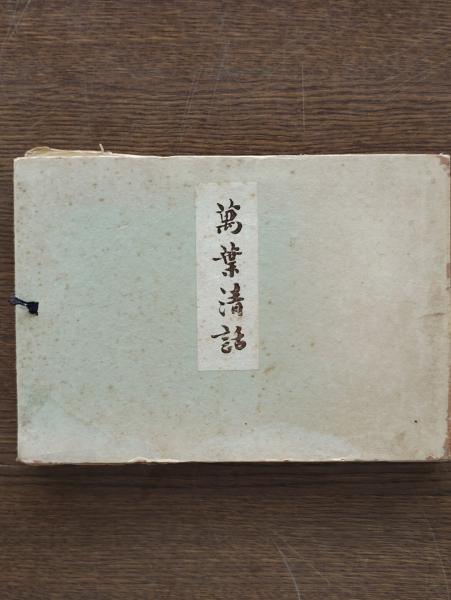 萬葉清話